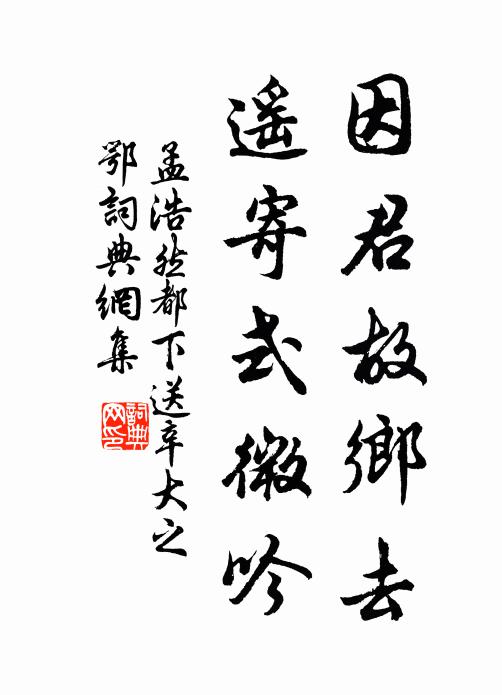 因君故鄉去
遥寄式微吟
孟浩然都下送辛大之
鄂詞典網集
詞典网印